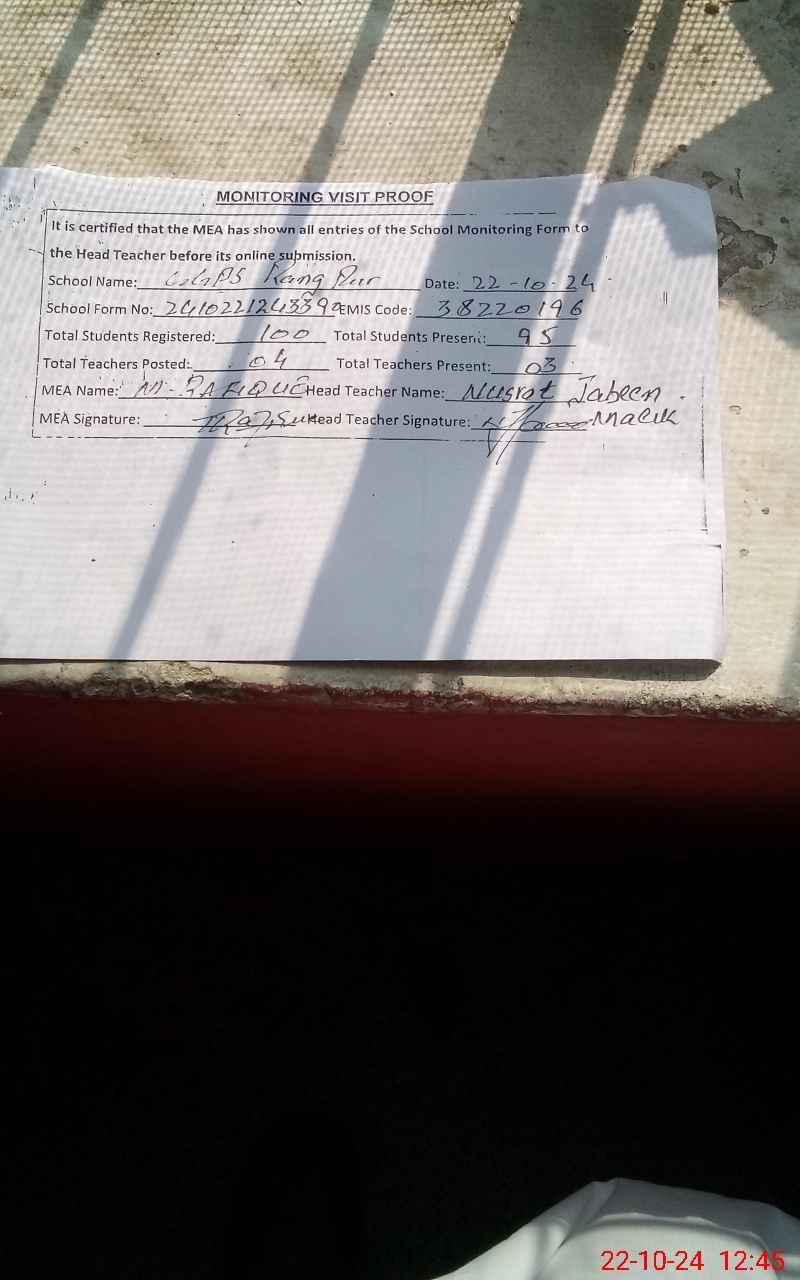 MONITORING VISIT PROOF
It is certified that the MEA has shown all entries of the School Monitoring Form to
the Head Teacher before its online submission.
School Name: GGPS Rang Pur Date: 22-10-24
School Form No: EMIS Code: 38220196
Total Students Registered: 100 Total Students Present: 95
Total Teachers Posted: 04 Total Teachers Present: 03
MEA Name: M. RAFIQUE Head Teacher Name: Nusrat Jabeen.
MEA Signature: Head Teacher Signature: Malik
22-10-24 12:45